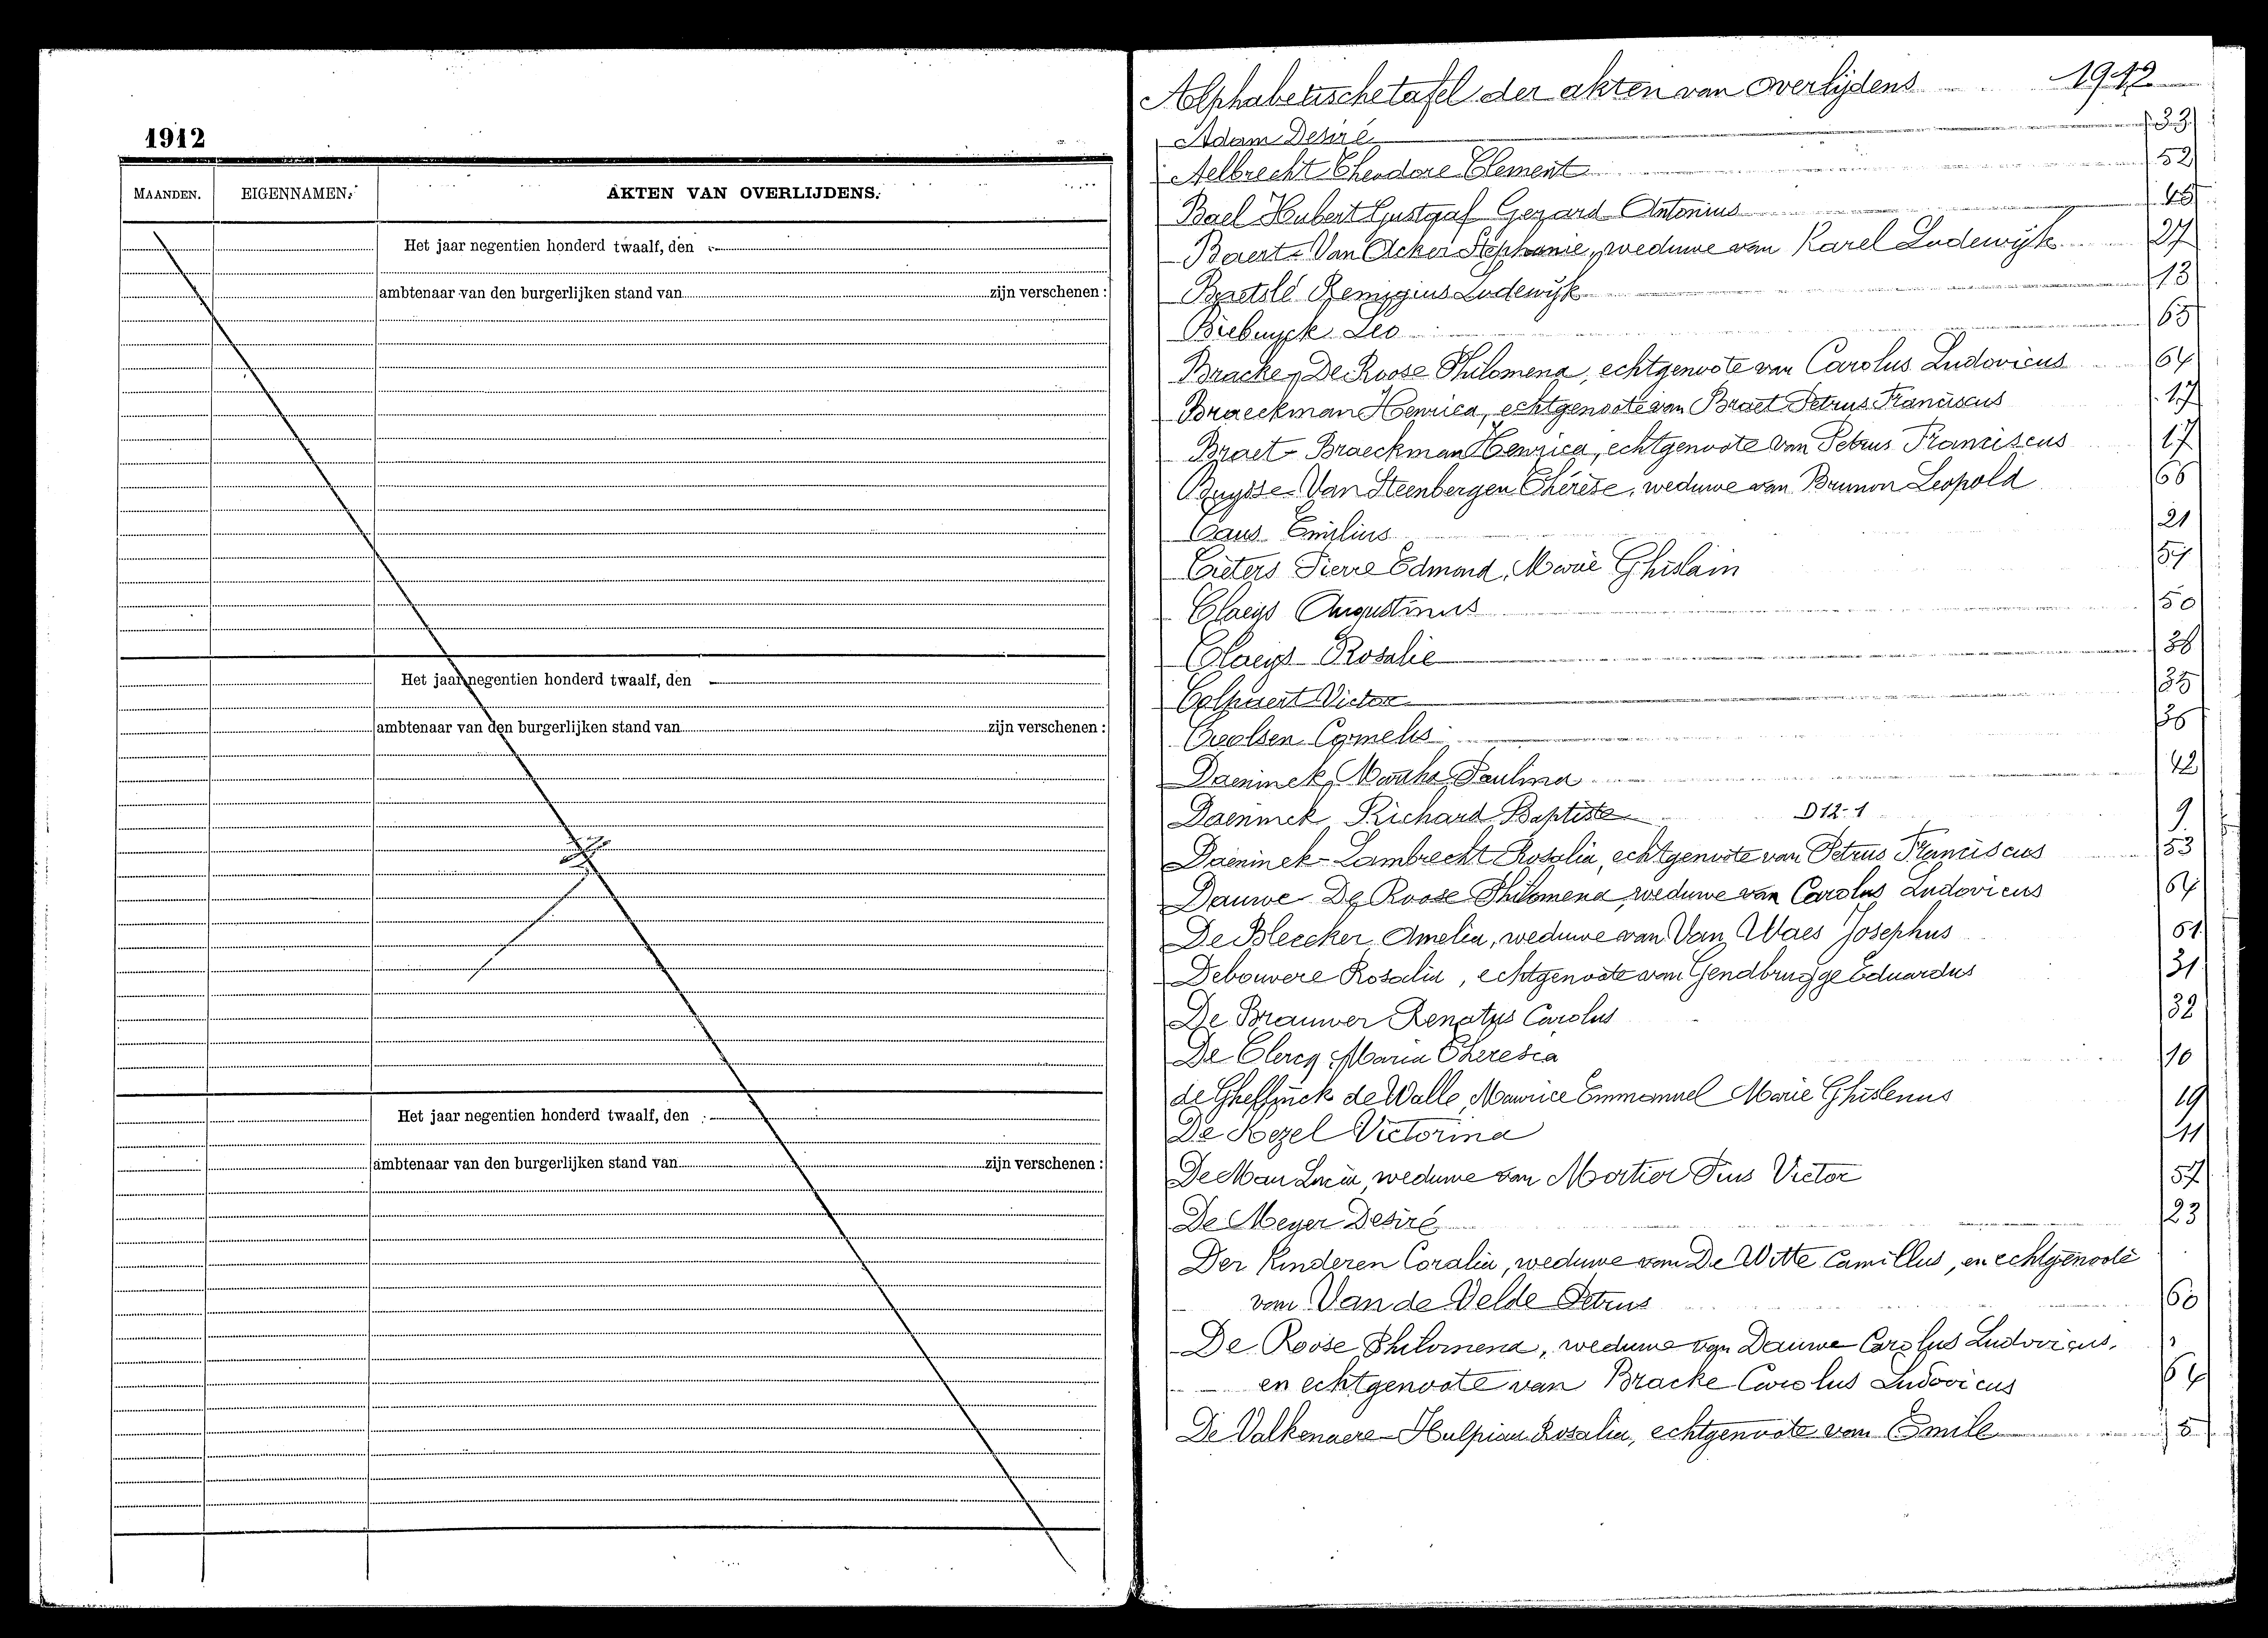 1912
MAANDEN. EIGENNAMEN. AKTEN VAN OVERLIJDENS.
Het jaar negentien honderd twaalf, den
ambtenaar van den burgerlijken stand van zijn verschenen :
Het jaar negentien honderd twaalf, den
ambtenaar van den burgerlijken stand van zijn verschenen :
Het jaar negentien honderd twaalf, den
ambtenaar van den burgerlijken stand van zijn verschenen :
Alphabetische tafel der akten van overlijdens 1912
Adam Desiré 33
Aelbrecht Theodore Clement 52
Bael Hubert Gustaaf Gerard Antonius
Baert - Van Acker Stephanie, weduwe van Karel Lodewijk 27
Remigius Lodewijk 13
Biebuyck Leo 63
Bracke, De Roose Philomena, echtgenoote van Carolus Ludovicus 64
Braeckman Henrica, echtgenoote van Braet Petrus Franciscus 17
Braet - Braeckman Henrica, echtgenoote van Petrus Franciscus 17
Buysse - Van Steenbergen Thérèse, weduwe van Brunon Leopold 66
Caus Emilius 21
Cieters Pierre Edmond, Marie Ghislain
Claeys Augustinus 50
Claeys Rosalie 38
Colpaert Victor 35
Cornelis 36
Daeninck Martha Paulina 42
Daeninck Richard Baptiste D 12-1 9
Daeninck - Lambrecht Rosalia, echtgenoote van Petrus Franciscus 53
Dauwe De Roose Philomena, weduwe van Carolus Ludovicus 64
De Bleecker Amelia, weduwe van Van Waes Josephus 61
Debouvere Rosalia, echtgenoote van Gendbrugge Eduardus 31
De Brauwer Renatus Carolus 32
De Clercq Maria Theresia 10
de Ghellinck de Walle, Maurice Emmanuel Marie Ghislenus 19
De Kezel Victorina 11
De Mau Lucia, weduwe van Mortier Pius Victor 57
De Meyer Desiré 23
Der Kinderen Coralia, weduwe van De Witte Camillus, en echtgenoote
van Van de Velde Petrus 60
De Roose Philomena, weduwe van Dauwe Carolus Ludovicus,
en echtgenoote van Bracke Carolus Ludovicus 64
De Valkenaere - Hulpiau Rosalia, echtgenoote van Emile 5